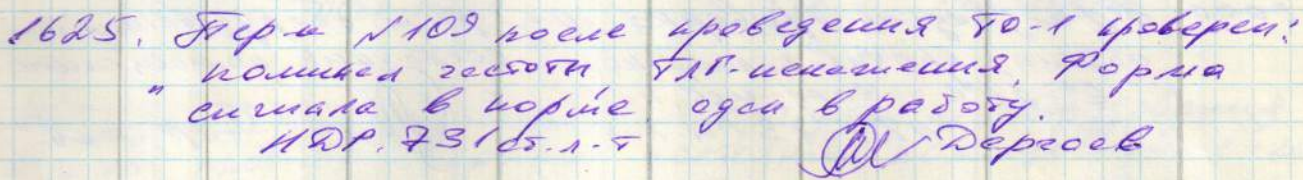 1625. Пер-к №109 после проведения ТО-1 проверен:
" номинал частоты, ТЛГ-искажения, Форма
сигнала в норме сдан в работу.
НДР. 731 ст. л-т Дергаев